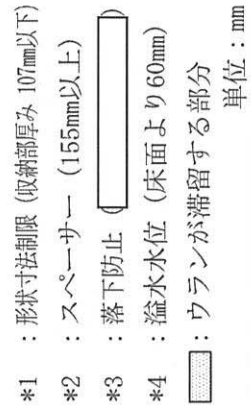 *1 : 形状寸法制限 (収納部厚み 107mm以下)
*2 : スペーサー (155mm以上)
*3 : 落下防止
*4 : 溢水水位 (床面より60mm)
: ウランが滞留する部分
単位 : mm